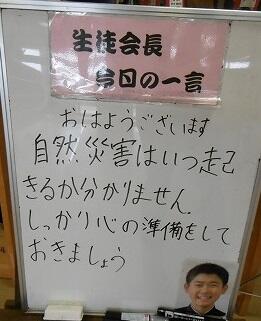 生徒会長
今日の一言
おはようございます
自然災害はいつ起
きるか分かりません
しっかり心の準備をして
おきましょう